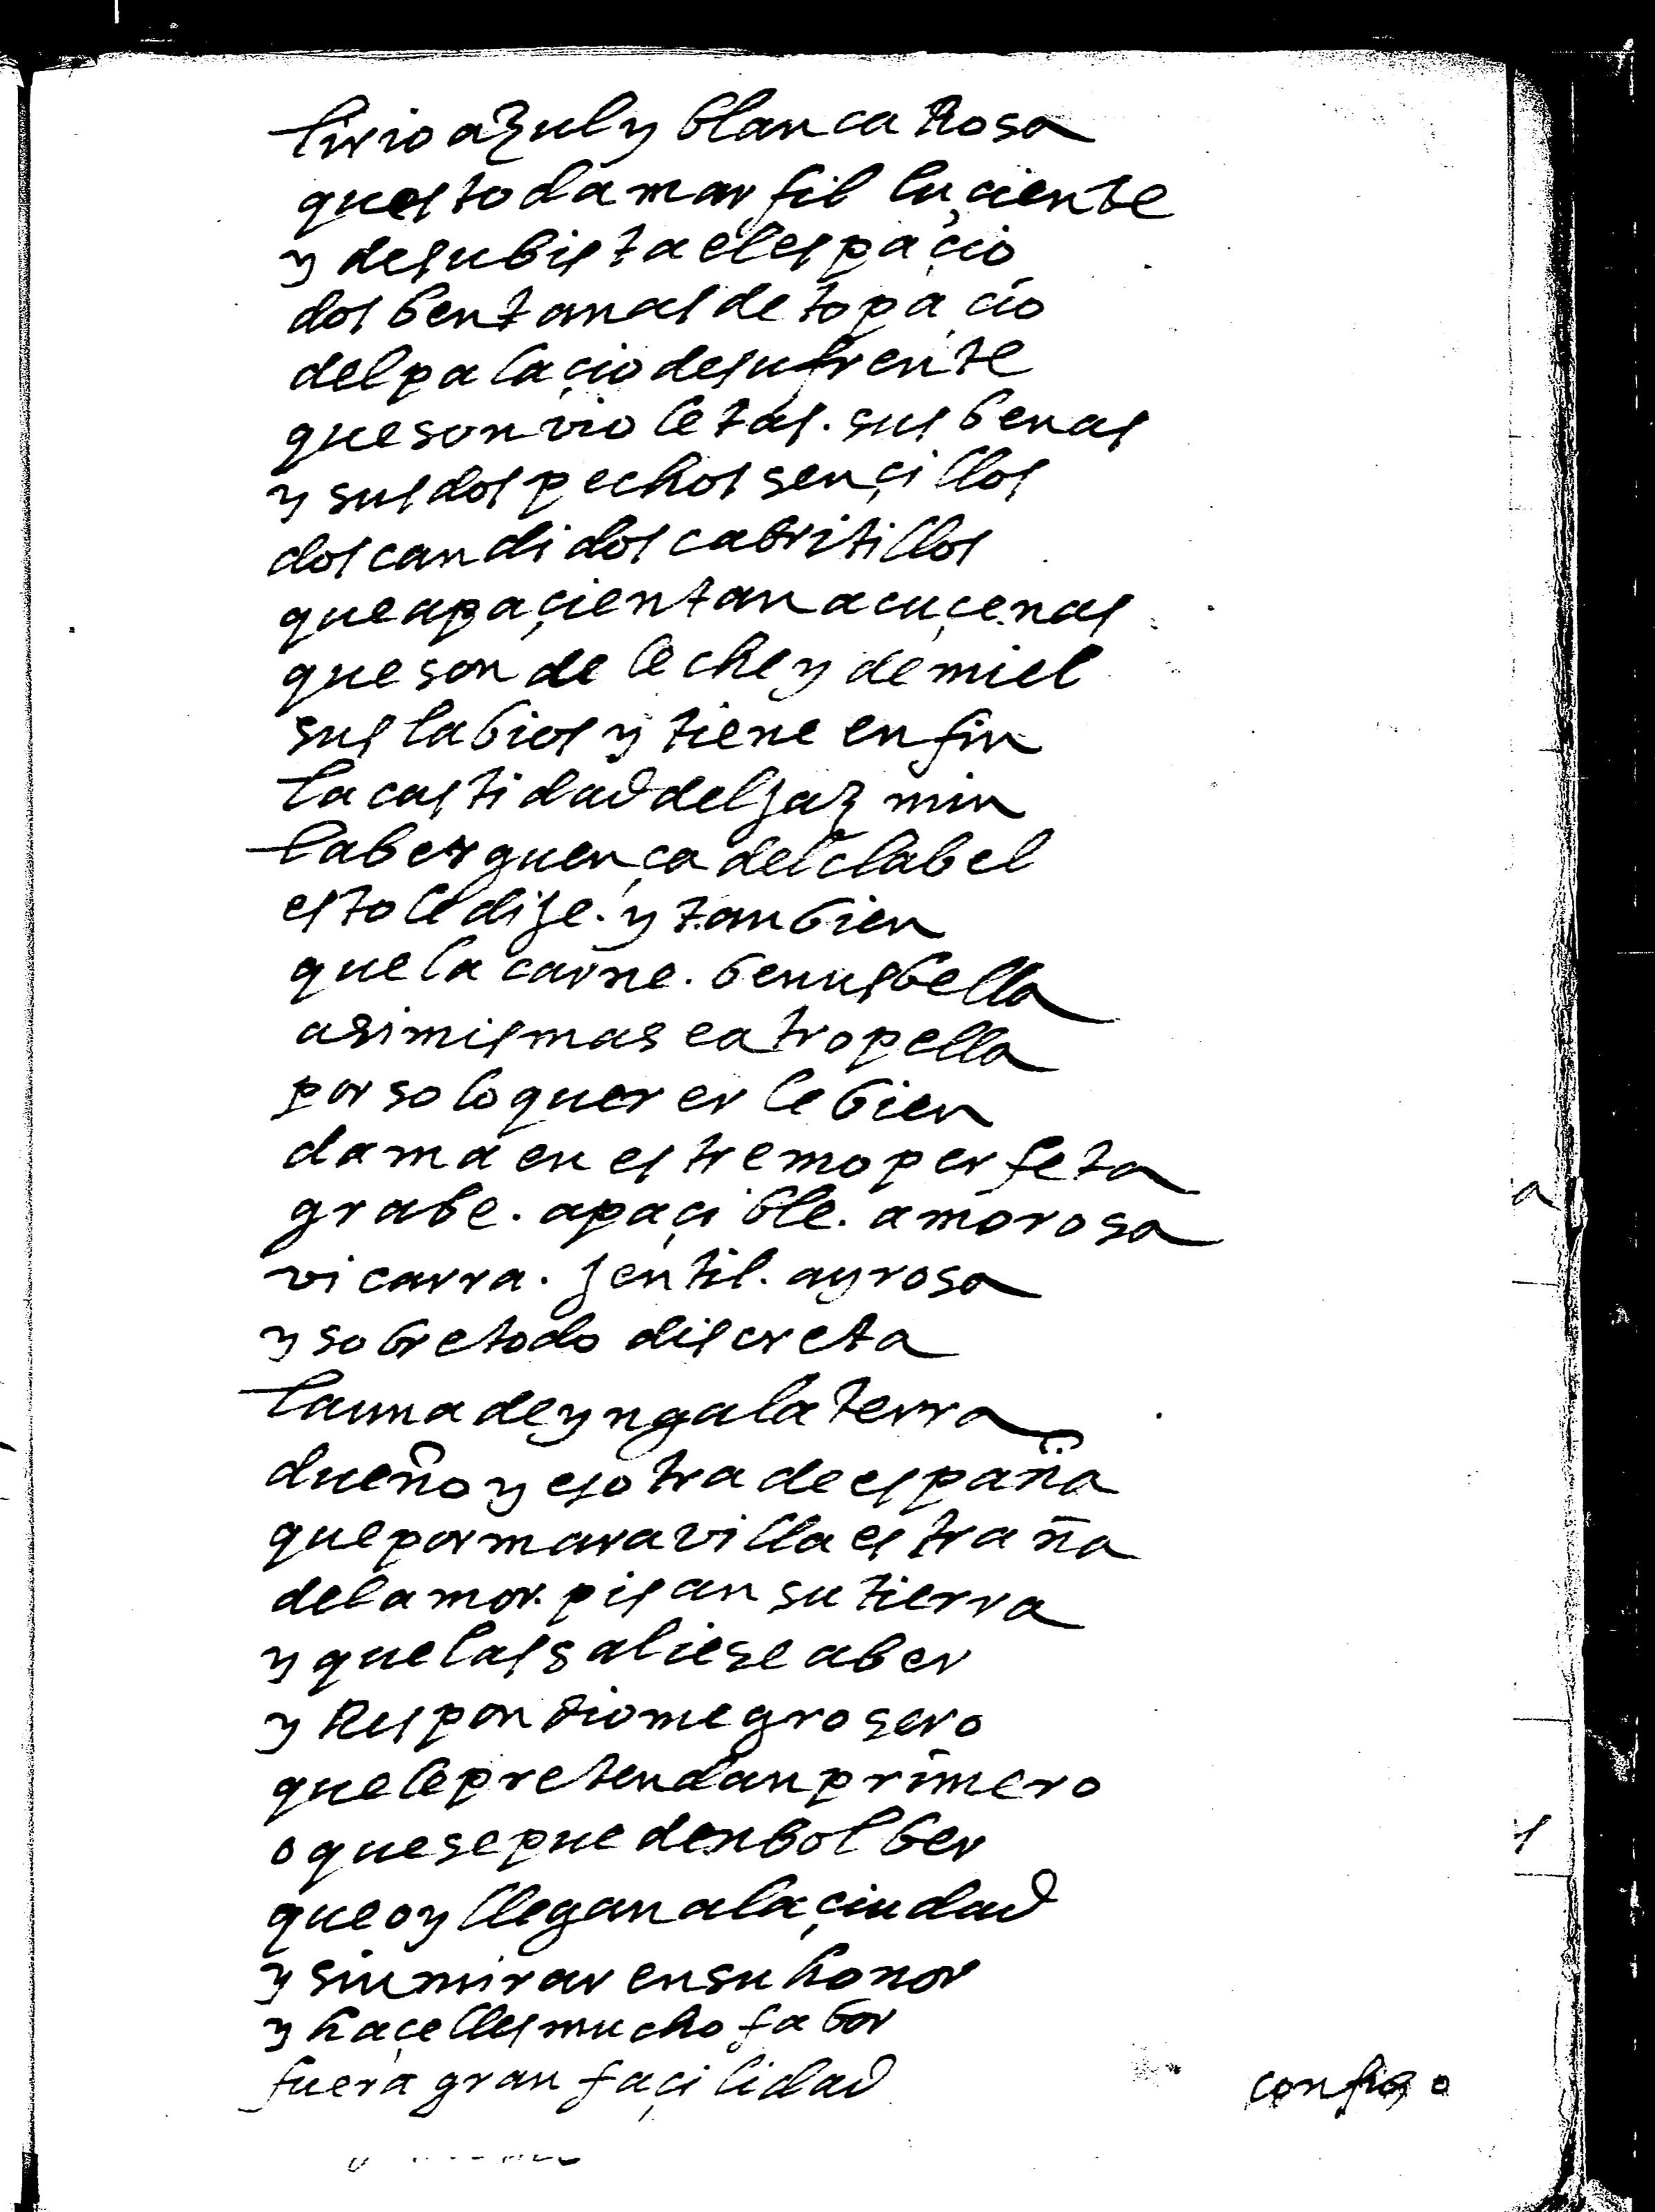 lirio azul y blanca Rosa
ques toda marfil luçiente
y de su bista el espaçio
dos bentanas de topaçio
del palaçio de su frente
que son violetas. sus benas
y sus dos pechos sençillos
dos candidos cabritillos
que apaçientan acuçenas
que son de leche y de miel
sus labios y tiene en fin
la castidad del jazmin
la berguença del clabel
esto le dije. y tanbien
que la carne. benus bella
asi misma se atropella
por solo quererle bien
dama en estremo perfeta
grabe. apaçible. amorosa
vicarra. jentil. ayrosa
y sobre todo discreta
la una de yngalaterra
dueño y esotra de españa
que por maravilla estraña
del amor. pisan su tierra
y que las saliese a ber
y Respondiome grosero
que le pretendan primero
o que se pueden bolber
que oy llegan a la çiudad
y sin mirar en su honor
y haçelles mucho fabor
fuera gran façilidad